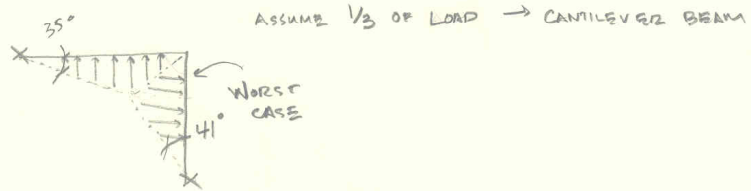 ASSUME 1/3 OF LOAD → CANTILEVER BEAM
35°
WORST
CASE
41°